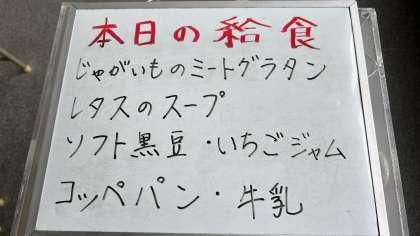 本日の給食
じゃがいものミートグラタン
レタスのスープ
ソフト黒豆・いちごジャム
コッペパン・牛乳